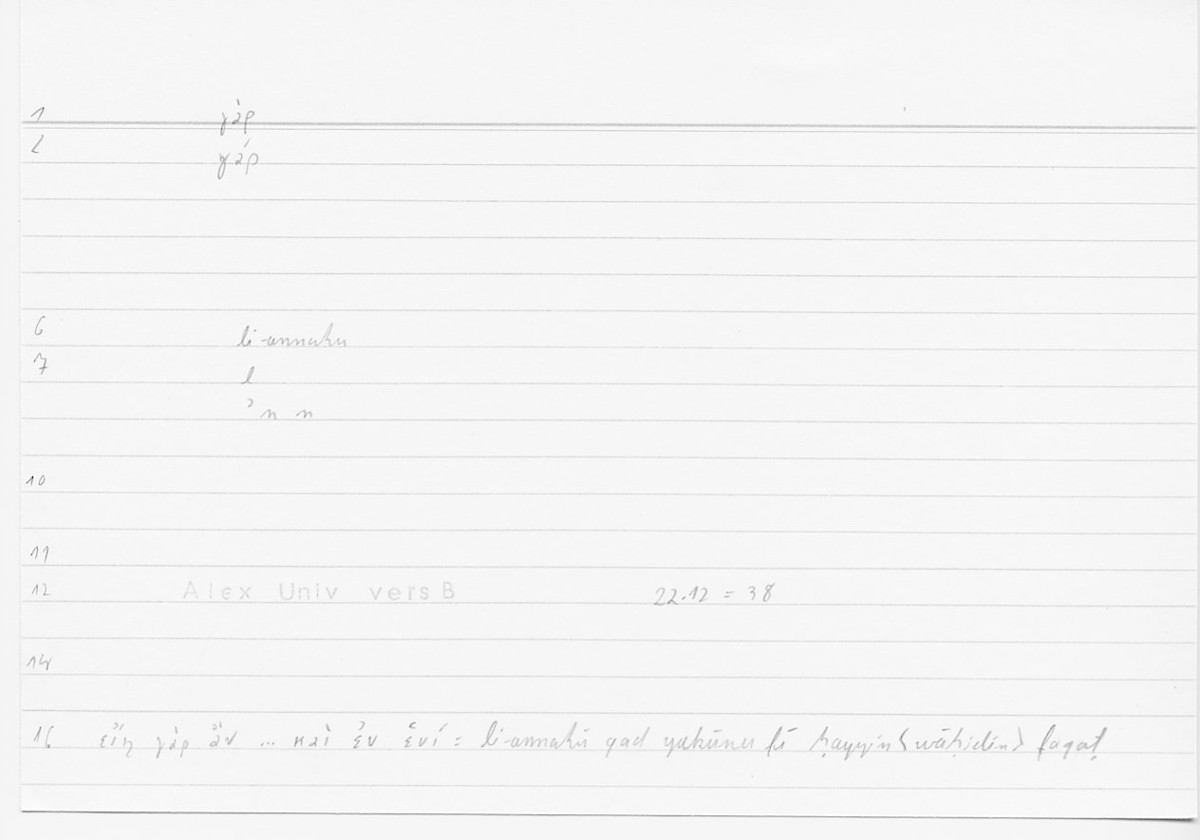 1 γὰρ
2 γάρ
6 li-annahu
7 l
ʾ n n
10
11
12 Alex Univ vers B 22.12 = 38
14
16 εἴη γὰρ ἂν ... καὶ ἐν ἑνί = li-annahū qad yakūnu fī ḥayyin ⟨wāḥidin⟩ faqaṭ